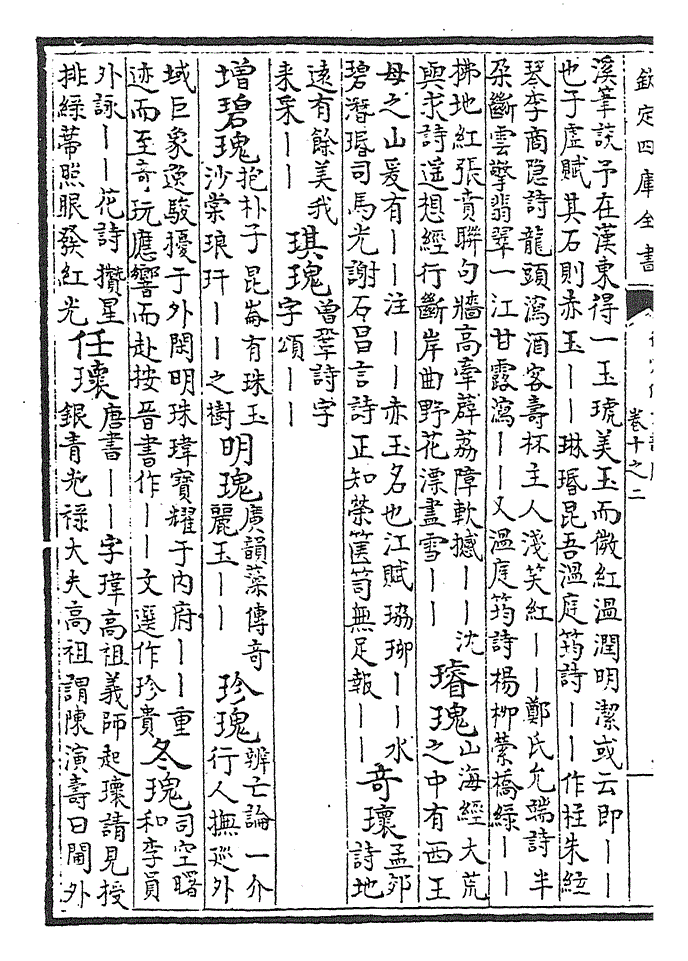 欽定四庫全書
卷十之二
溪筆談予在漢東得一玉琥美玉而微紅溫潤明潔或云即——
也子虛賦其石則赤玉——琳瑉昆吾溫庭筠詩——作柱朱絃
琴李商隱詩龍頭瀉酒客壽杯主人淺笑紅——鄭氏允端詩半
朶斷雲擎翡翠一江甘露瀉——又溫庭筠詩楊柳縈橋綠——
拂地紅張賁聯句牆高牽薜荔障軟撼——沈
與求詩遥想經行斷岸曲野花漂盡雪——
璿瑰
山海經大荒
之中有西王
母之山爰有——注——赤玉名也江賦珕珋——水
碧潛瑉司馬光謝石昌言詩正知榮篋笥無足報——
奇瓌
孟郊
詩地
遠有餘美我
来采——
琪瑰
曾鞏詩字
字頌——
增碧瑰
抱朴子昆崙有珠玉
沙棠琅玕——之樹
明瑰
廣韻藻傳奇
麗玉——
珍瑰
辨亡論一介
行人撫廵外
域巨象逸駿擾于外閑明珠瑋寶耀于内府——重
迹而至奇玩應響而赴按晉書作——文選作珍貴
冬瑰
司空曙
和李員
外詠——花詩攢星
排綠蒂照眼發紅光
任瓌
唐書——字瑋高祖義師起瓌請見授
銀青光祿大夫高祖謂陳演壽曰閫外